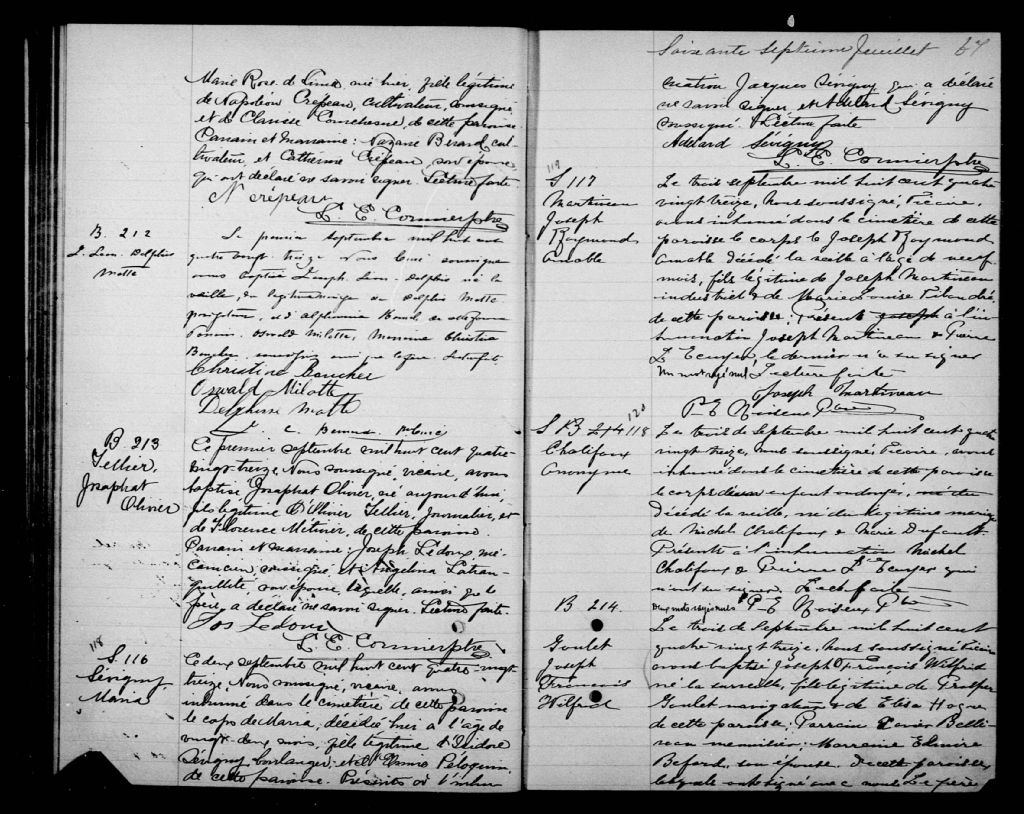 Marie Rose de Lima, née hier, fille légitime
de Napoléon Crépeau, cultivateur, soussigné,
et de Clarisse Courchesne, de cette paroisse.
Parrain et Marraine: Nazaire Berard, cul-
tivateur, et Catherine Crépeau, son épouse,
qui ont déclaré ne savoir signer. Lecture faite.
N crépeau
L. E. Cormier ptre
B. 212
J. Léon. Delphis
Motte
Le premier septembre mil huit cent
quatre vingt treize Nous Curé soussigné
avons baptisé Joseph Léon Delphis né la
veille, du légitime mariage de Delphis Motte
et d'Alphonsine
Parrain Oswald Milotte, Marraine Christine
Boucher
Christine Boucher
Oswald Milotte
Delphis Motte
B 213
Tellier,
Josaphat
Olivier
Ce premier septembre mil huit cent quatre-
vingt-treize, Nous soussigné, vicaire, avons
baptisé Josaphat Olivier, né aujourd'hui,
fils légitime d'Olivier Tellier, Journalier, et
de Florence Métivier, de cette paroisse.
Parrain et marraine: Joseph Ledoux, mé-
canicien, soussigné, et Angelina Latran-
quillité, son épouse, laquelle, ainsi que le
père, a déclaré ne savoir signer. Lecture faite.
Jos Ledoux
L. E. Cormier ptre
118
S. 116
Sévigny,
Maria
Ce deux septembre mil huit cent quatre-vingt-
treize, Nous soussigné, vicaire, avons
inhumé dans le cimetière de cette paroisse
le corps de Maria, décédée hier à l'âge de
vingt-deux mois, fille légitime d'Isidore
Sévigny boulanger, et Peloquin,
de cette paroisse. Présents à l'inhu-
Soixante septième feuillet 67
mation Jacques Sévigny qui a déclaré
ne savoir signer et Adélard Sévigny
soussigné. Lecture faite
Adelard Sévigny
L. E. Cormier ptre
119
S 117
Martineau
Joseph
Raymond
Amable
Le trois septembre mil huit cent quatre
vingt treize, Nous soussigné, Vicaire,
avons inhumé dans le cimetière de cette
paroisse le corps de Joseph Raymond
Amable décédé la veille à l'âge de neuf
mois, fils légitime de Joseph Martineau
industriel & de Marie Louise
de cette paroisse. Présents à l'in-
humation Joseph Martineau & Pierre
L'Ecuyer, le dernier n'a su signer
Un mot rayé nul Lecture faite
Joseph Martineau
P. E. Noiseux Ptre
120
S B 214 118
Chalifoux
Anonyme
Le trois de Septembre mil huit cent quatre
vingt treize, nous soussigné, Vicaire, avons
inhumé dans le cimetière de cette paroisse
le corps d'un enfant ondoyé, né du
décédé la veille, né du légitime mariage
de Michel Chalifoux & Marie
Présents à l'inhumation Michel
Chalifoux & Pierre L'Ecuyer qui
n'ont su signer. Lecture faite
Deux mots rayés nuls P. E. Noiseux Ptre
B 214.
Goulet
Joseph
François
Wilfrid
Le trois de Septembre mil huit cent
quatre vingt treize, nous soussigné Vicaire
avons baptisé Joseph François Wilfrid
né la surveille, fils légitime de Prosper
Goulet navigateur & de Elisa
de cette paroisse; Parrain Xavier
menuisier; Marraine Elmire
son épouse de cette paroisse